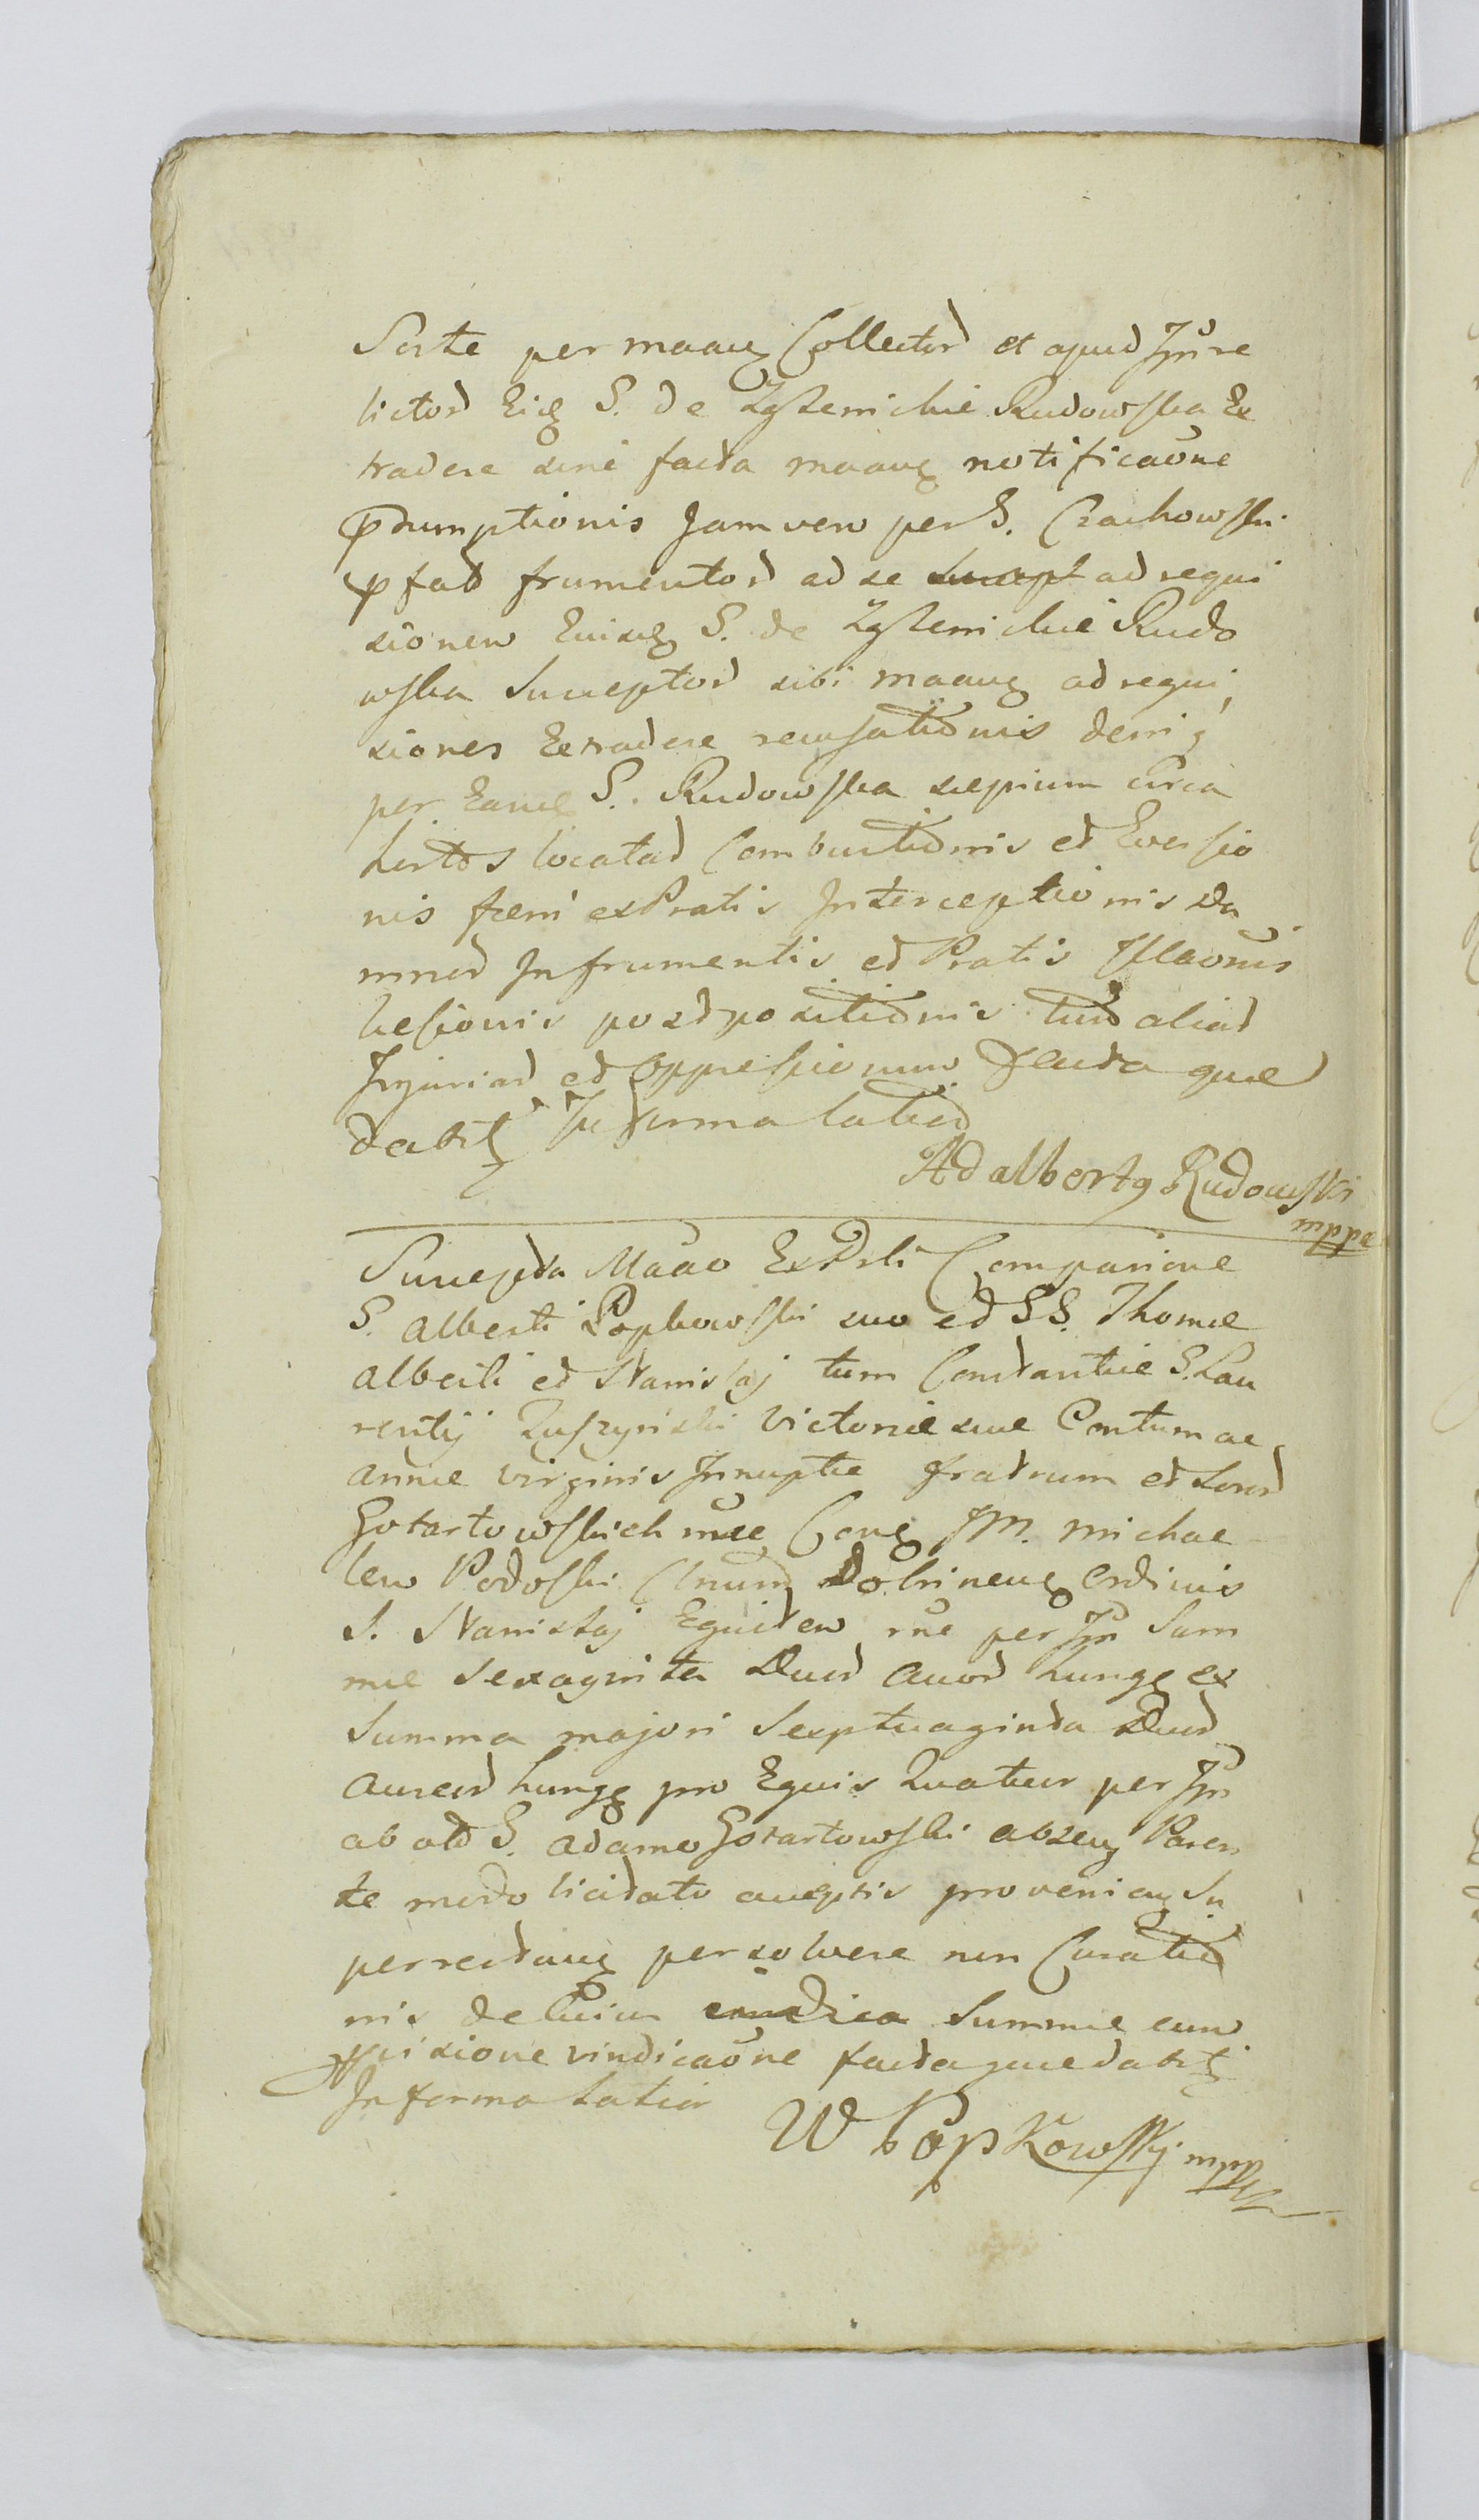 Sorte per maaug Collector et apud Jnre
lictor Eid S. de Zgliemickie Rudowska Ex
tradere sine facta maaug notificaone
Psumptionis Jam vero per S. Czachowski
pfat frumentor ad se suscept ad requi
sionem Euisd S. de Zgliemickie Rudo
wska Susceptor sibi maaug ad requi
siones Extradere recusationis deniq
per Eand S. Rudowska sepium circa
hortos locatar Combustionis et Eversio
nis feni ex Pratis Interceptionis Da
mnor In frumentis et Pratis Illaonis
lesionis postpositionis tum aliar
Injuriar et Oppressionum facta que
dabit In Terma latior
Adalbertq Rudowski
mppa
Suscepta Maao Ex Psli Comparione
S. Alberti Popkowski suo et SS. Thome
Alberti et Stanislaj tum Constantie S. Lau
rentij Zuszynski Victorie sue Contumac
Anne virginis Innupte fratrum et Soror
Gotartowskich noie Cong JM. Michae
lem Podoski Cnum Dobrineng Ordinis
S. Stanislaj Equitem rne per Jn Sum
me Sexaginta Duor Auor hungg ex
Summa majori Septuaginta Duor
Aureor hungg pro Equis Quatuor per Jn
ab olt S. Adamo Gotartowski abseug Paren
te modo licitato acceptis proveniens Su
perrestaug persolvere non Curatio
nis de Cuius Summe cum
ppisione vindicaone facta que dabit
In forma latior
W Popkowsky mppa